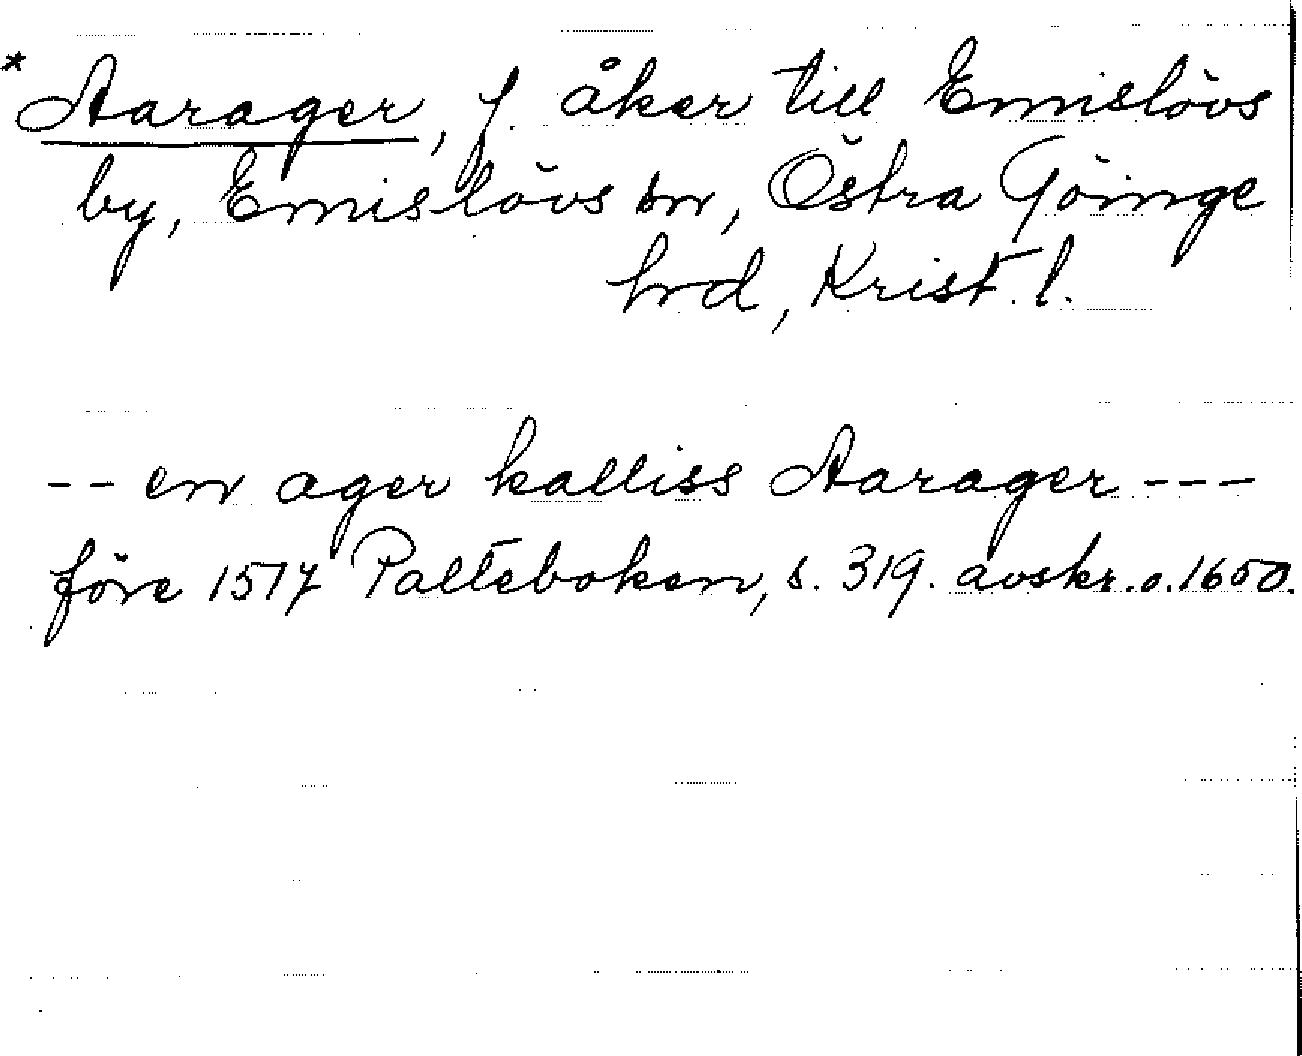 * Aarager, f. åker till Emislövs
by, Emislövs sn, Östra Göinge
hrd, Krist. l.
-- en ager kalliss Aarager ---
före 1517 Palteboken, s. 319. avskr. o. 1650.